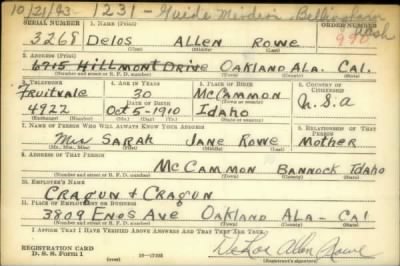 10/21/43 1231 - Guide Meridian Bellingham Wash
SERIAL NUMBER 1. NAME (Print) ORDER NUMBER
3268 Delos Allen Rowe 990
(First) (Middle) (Last)
2. ADDRESS (Print)
6715 Hillmont Drive Oakland Ala. Cal.
(Number and street or R. F. D. number) (Town) (County) (State)
3. TELEPHONE 4. AGE IN YEARS 5. PLACE OF BIRTH 6. COUNTRY OF CITIZENSHIP
Fruitvale 30 McCammon
DATE OF BIRTH
4922 Oct 5-1910 Idaho U.S.a
(Exchange) (Number) (Mo.) (Day) (Yr.) (State or country)
7. NAME OF PERSON WHO WILL ALWAYS KNOW YOUR ADDRESS 8. RELATIONSHIP OF THAT PERSON
Mrs Sarah Jane Rowe Mother
(Mr., Mrs., Miss) (First) (Middle) (Last)
9. ADDRESS OF THAT PERSON
McCammon Bannock Idaho
(Number and street or R. F. D. number) (Town) (County) (State)
10. EMPLOYER'S NAME
Cragun & Cragun
11. PLACE OF EMPLOYMENT OR BUSINESS
3809 Enos Ave Oakland Ala- Cal
(Number and street or R. F. D. number) (Town) (County) (State)
I AFFIRM THAT I HAVE VERIFIED ABOVE ANSWERS AND THAT THEY ARE TRUE.
REGISTRATION CARD
D. S. S. Form 1 (over) Allen Rowe
(Registrant's signature)